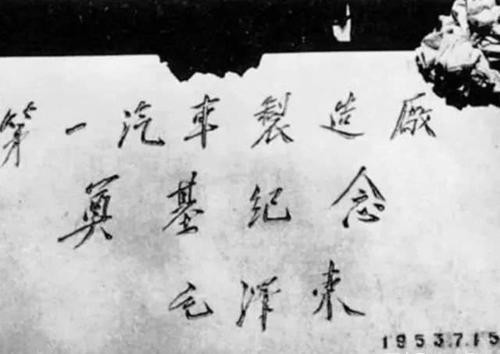 第一汽車製造廠
奠基纪念
毛泽东
1953.7.15